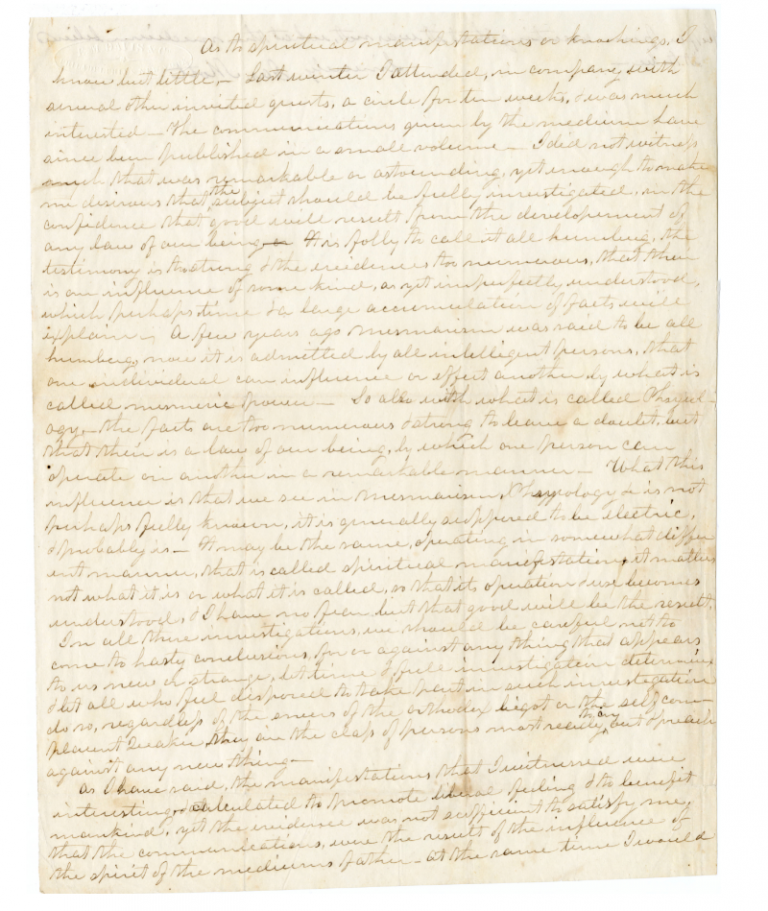 As to spiritual manifestations or knockings, I
know but little,— Last winter I attended, in company with
several other invited guests, a circle for ten weeks, & was much
interested — the communications given by the medium have
since been published in a small volume — I did not witness
much that was remarkable or astounding, yet enough to make
me desirous that the subject should be fully investigated, in the
confidence that good will result from the developement of
any law of our being — It is folly to call it all humbug, the
testimony is too strong & the evidence too numerous, that there
is an influence of some kind, as yet imperfectly understood,
which perhaps time & a large accumulation of facts will
explain — A few years ago mesmerism was said to be all
humbug, now it is admitted by all intelligent persons, that
one individual can influence or effect another by what is
called mesmeric power — So also with what is called
ogy,— the facts are too numerous & strong to leave a doubt, but
that their is a law of our being, by which one person can
operate on another in a remarkable manner — What this
influence is that we see in mesmerism, & is not
perhaps fully known, it is generally supposed to be electric,
& probably is — It may be the same, operating in somewhat differ
ent manner, that is called spiritual manifestations, it matters
not what it is or what it is called, so that its operation & use becomes
understood, & I have no fear but that good will be the result,
In all these investigations, we should be careful not to
come to hasty conclusions, for or against any thing that appears
to us new or strange, let time & full investigation determine
& let all who feel disposed to take part in such investigation
do so, regardless of the sneers of the orthodox bigot or the self com-
placent Quaker, than are the class of persons most ready, but preach
against any new thing —
As I have said, the manifestations that I witnessed were
interesting & calculated to promote liberal feeling & to benefit
mankind, yet the evidence was not sufficient to satisfy me,
that the communications, were the result of the influence of
the spirit of the mediums father — at the same time I would